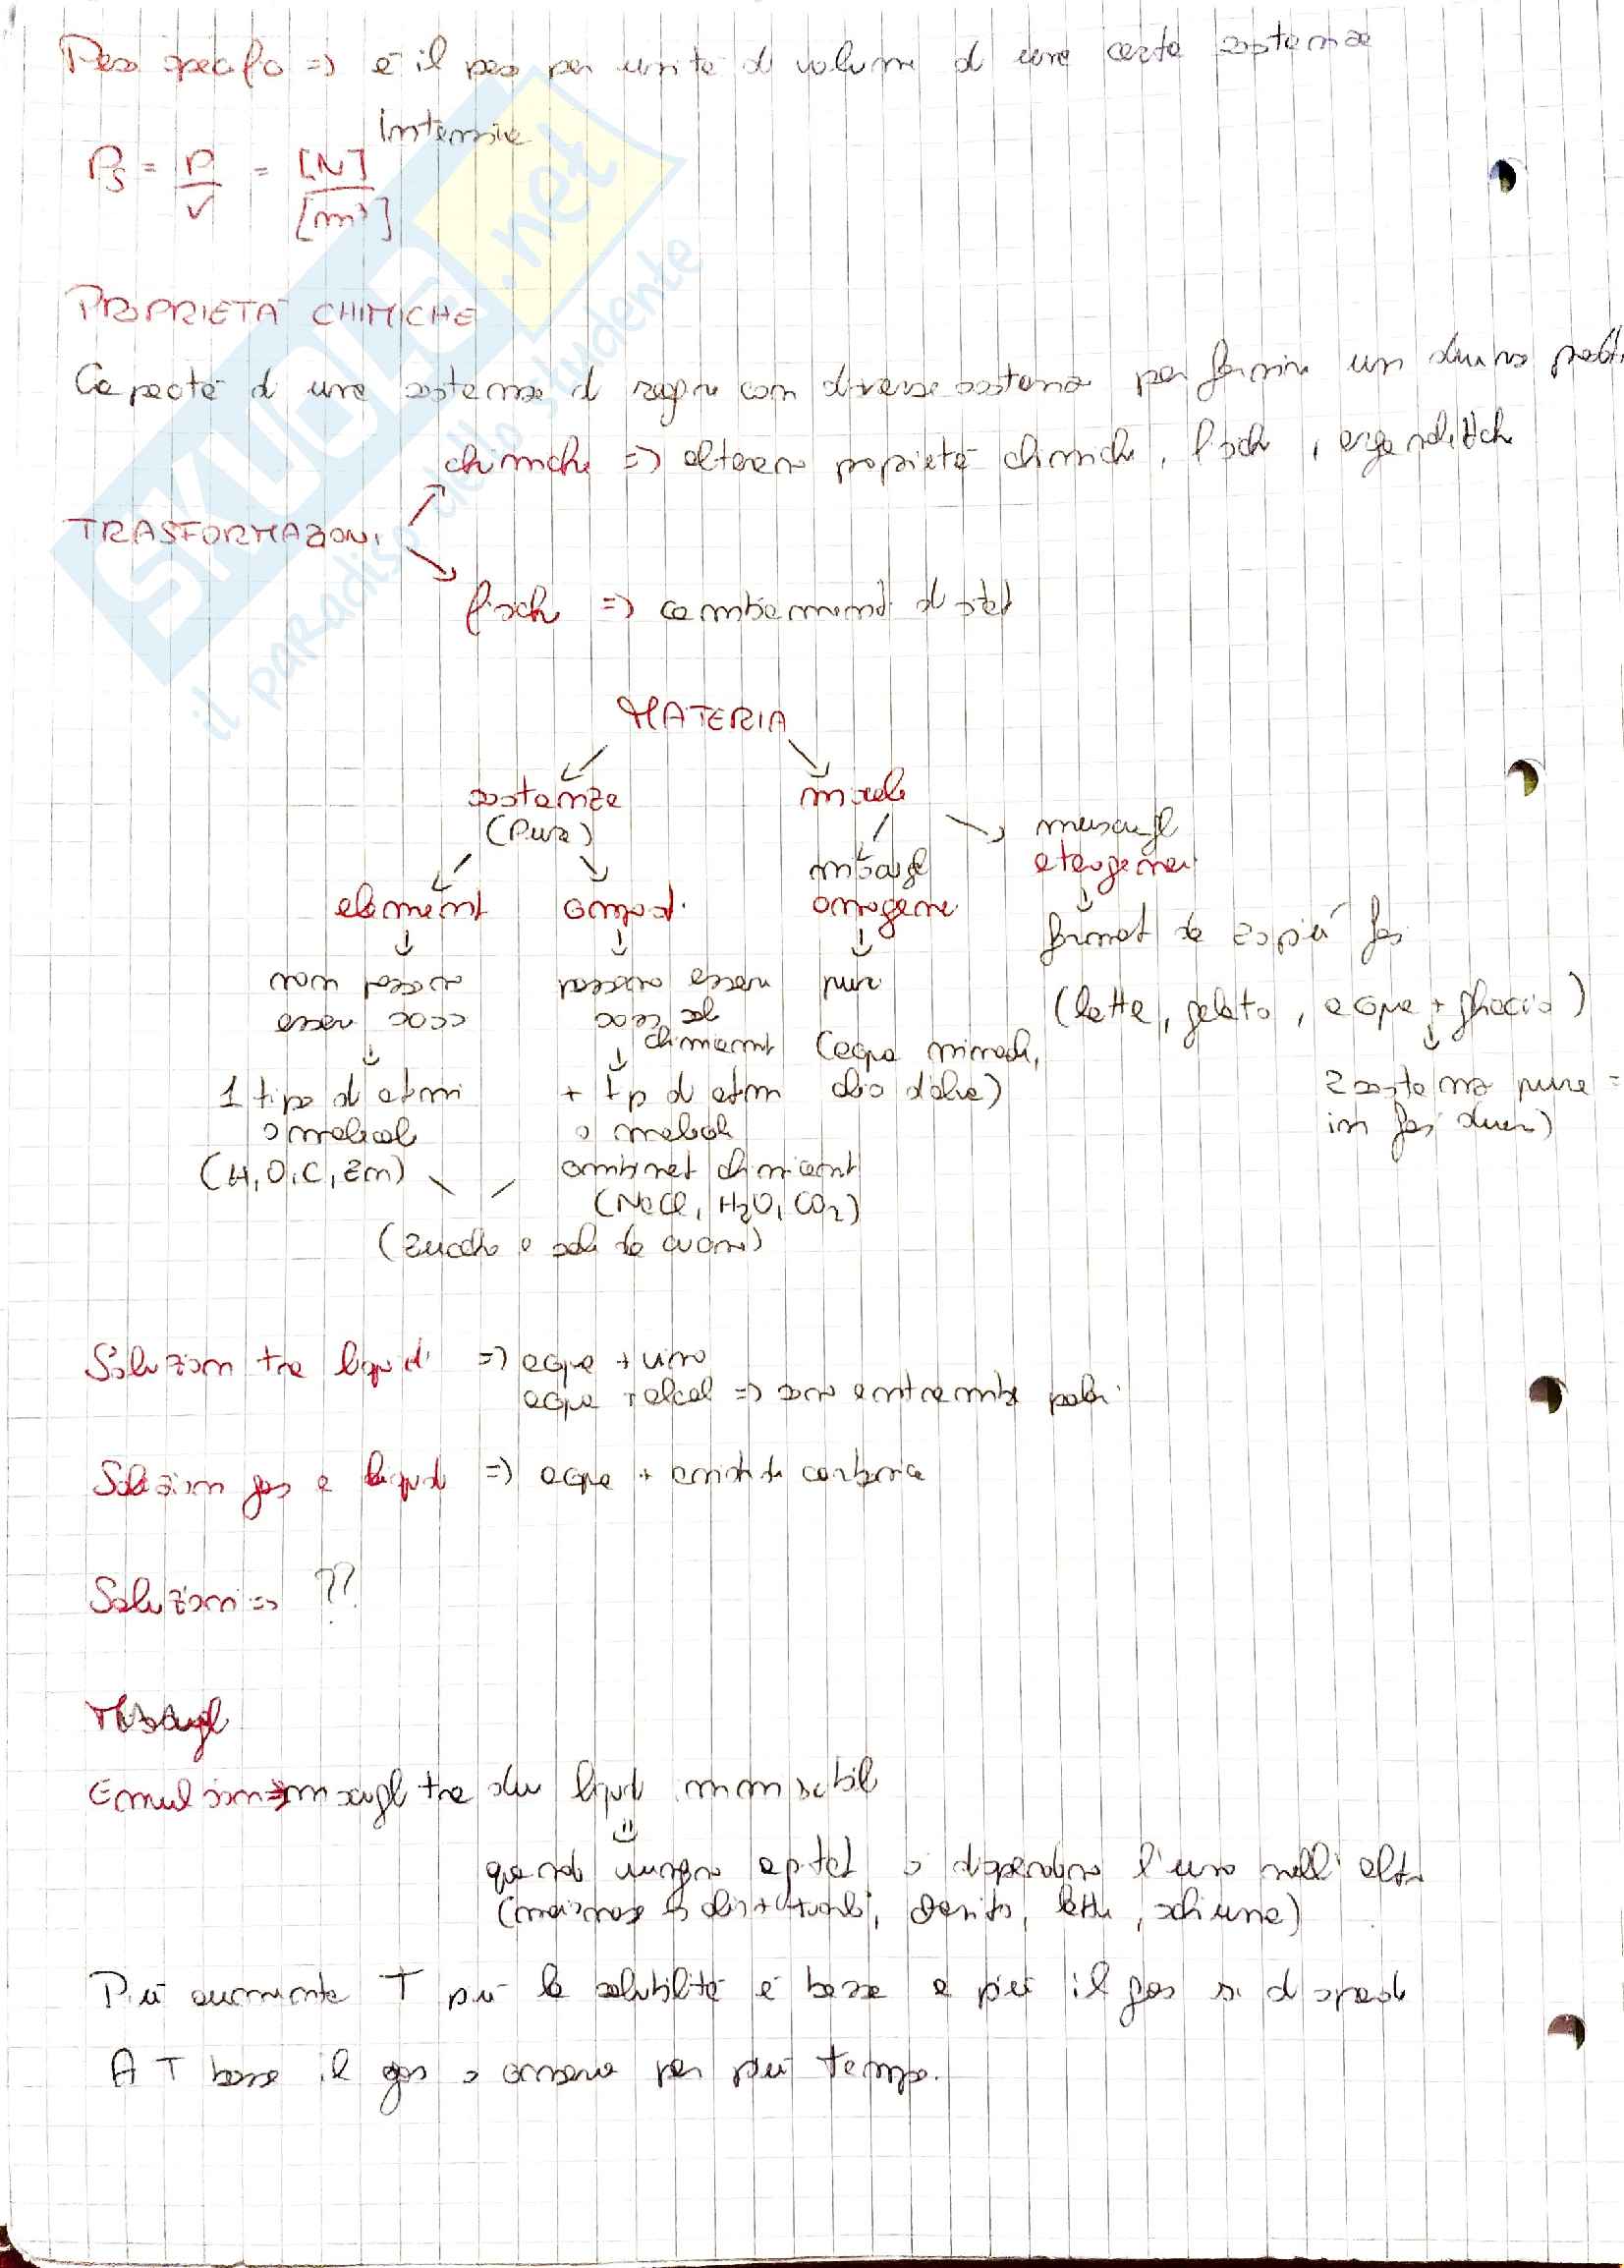 Peso specifico => è il peso per unità di volume di una certa sostanza
Intensiva
Ps = P/V = [N]/[m³]
PROPRIETÀ CHIMICHE
Capacità di una sostanza di reagire con diverse sostanze per fornire un diverso
chimiche => alterano proprietà chimiche, fisiche,
TRASFORMAZIONI
fisiche => cambiamenti di stato
MATERIA
sostanze miscele
(Pure) miscugli
miscugli eterogenei
elementi composti omogenei
formati da 2 o più fasi
non possono possono essere pure
essere scissi scissi
chimicamente (acqua minerale,
(latte, gelato, acqua + ghiaccio)
1 tipo di atomi + tipi di atomi olio d'oliva)
2 sostanze pure =
o molecole o molecole in fasi diverse)
(H, O, C, Zn) combinati chimicamente
(NaCl, H₂O, CO₂)
(zucchero e sale da cucina)
Soluzioni tra liquidi => acqua + vino
acqua + alcol => sono entrambe polari
Soluzioni gas e liquidi => acqua + anidride carbonica
Soluzioni => ??
Miscugli
Emulsioni => miscugli tra due liquidi immiscibili
quando vengono agitati si disperdono l'uno nell'altro
(maionese latte, schiuma)
Più aumenta T più la solubilità è bassa e più il gas si disperde
A T bassa il gas si conserva per più tempo.
SKUOLA.net
il paradiso dello studente